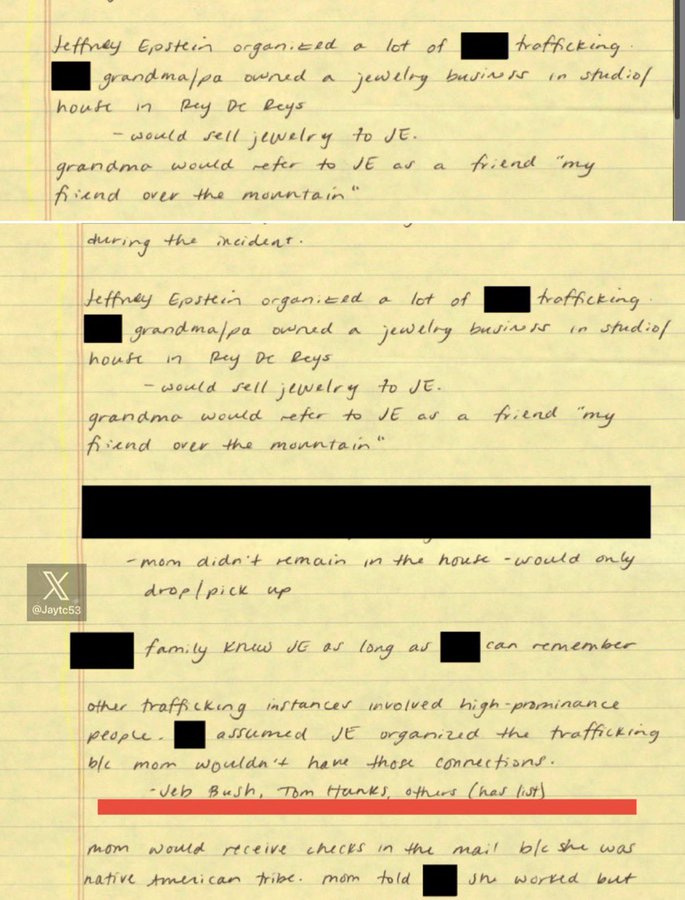 Jeffrey Epstein organized a lot of trafficking.
grandma/pa owned a jewelry business in studio/
house in Rey De Reys
- would sell jewelry to JE.
grandma would refer to JE as a friend "my
friend over the mountain"
during the incident.
Jeffrey Epstein organized a lot of trafficking.
grandma/pa owned a jewelry business in studio/
house in Rey De Reys
- would sell jewelry to JE.
grandma would refer to JE as a friend "my
friend over the mountain"
- mom didn't remain in the house - would only
drop/pick up
@Jaytc53
family knew JE as long as can remember
other trafficking instances involved high-prominance
people. assumed JE organized the trafficking
b/c mom wouldn't have those connections.
- Jeb Bush, Tom Hanks, others (has list)
mom would receive checks in the mail b/c she was
native American tribe. mom told she worked but